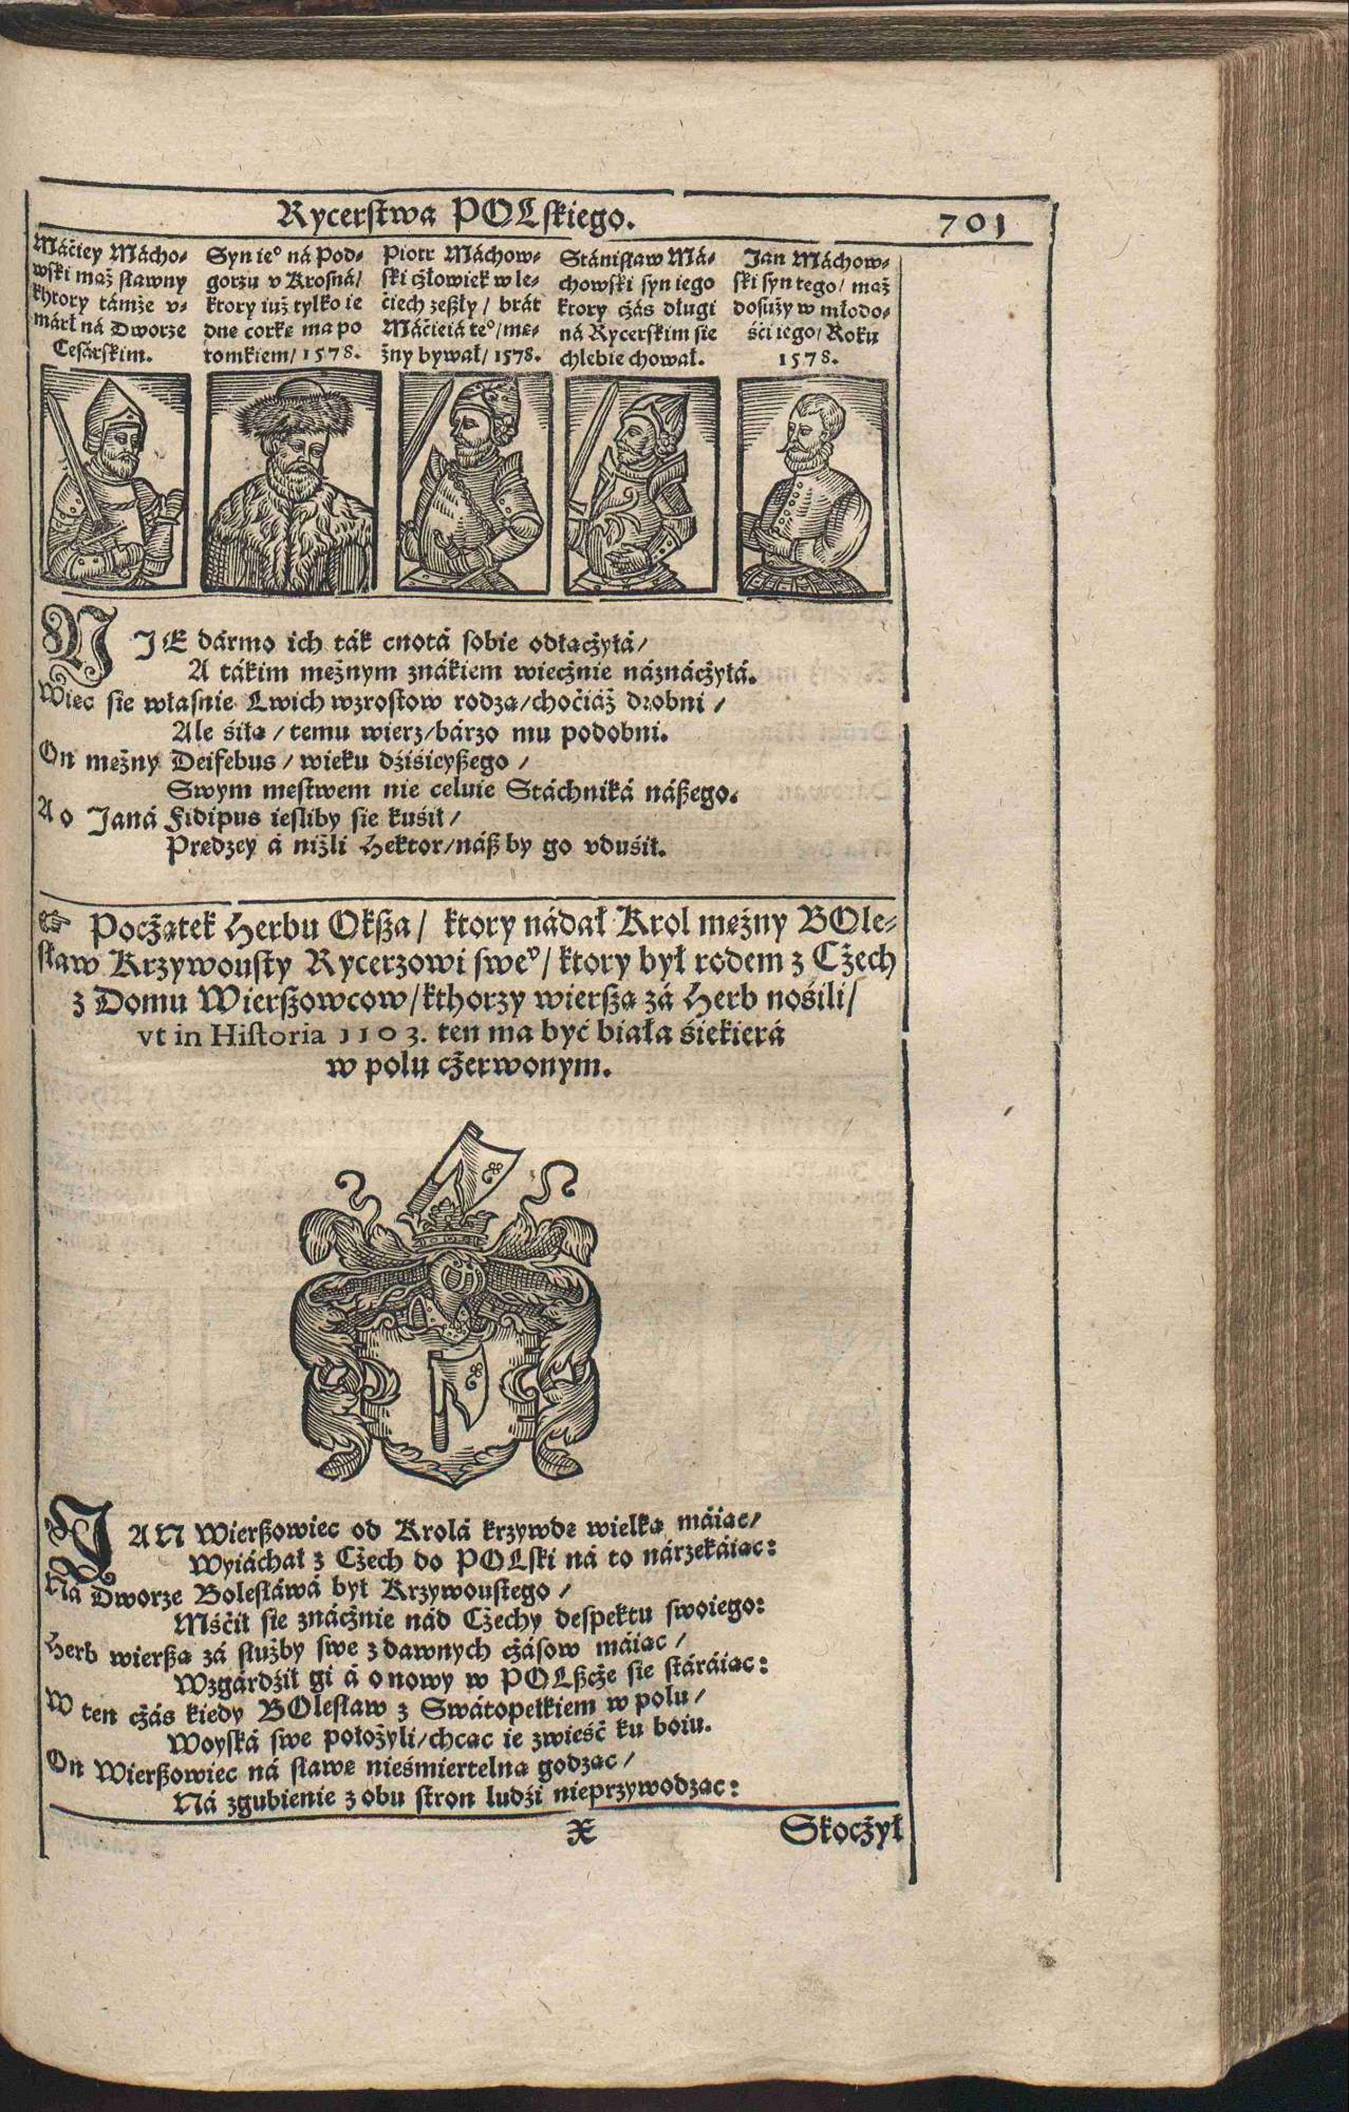 Rycerstwa POLskiego.
701
Máćiey Mácho⸗
wski mąż sławny
kthory támże v⸗
márł ná Dworze
Cesárskim.
Syn ieº ná Pod⸗
gorzu v Krosná/
ktory iuż tylko ie
dnę corkę ma po
tomkiem/ 1578.
Piotr Máchow⸗
ski cżłowiek w le⸗
ćiech zeszły / brát
Máćieiá teº/ mę⸗
żny bywał/ 1578.
Stánisław Má⸗
chowski syn iego
ktory cżás długi
ná Rycerskim sie
chlebie chował.
Jan Máchow⸗
ski syn tego/ mąż
dosuży w młodo⸗
śći iego/ Roku
1578.
NIE dármo ich ták cnotá sobie odłącżyłá/
A tákim mężnym znákiem wiecżnie náznácżyłá.
Więc sie własnie Lwich wzrostow rodzą/ choćiáż drobni /
Ale śiłą / temu wierz/ bárzo mu podobni.
On mężny Deifebus / wieku dźiśieyszego /
Swym męstwem nie celuie Stáchniká nászego.
A o Janá Fidipus iesliby sie kuśił /
Prędzey á niżli Hektor/ nász by go vduśił.
☞ Pocżątek Herbu Oksza / ktory nádał Krol mężny BOle⸗
sław Krzywousty Rycerzowi sweº/ ktory był rodem z Cżech
z Domu Wierszowcow/ kthorzy wierszą zá Herb nośili/
vt in Historia 1103. ten ma być biała śiekierá
w polu cżerwonym.
JAN Wierszowiec od Krolá krzywdę wielką máiąc/
Wyiáchał z Cżech do POLski ná to nárzekáiąc:
Ná Dworze Bolesłáwá był Krzywoustego /
Mśćił sie znácżnie nád Cżechy despektu swoiego:
Herb wierszą zá służby swe z dawnych cżásow máiąc /
Wzgárdźił gi á o nowy w POLszcże sie stáráiąc:
W ten cżás kiedy BOlesław z Swátopełkiem w polu /
Woyská swe położyli/ chcąc ie zwieść ku boiu.
On Wierszowiec ná sławę nieśmiertelną godząc /
Ná zgubienie z obu stron ludźi nieprzywodząc:
X
Skocżył